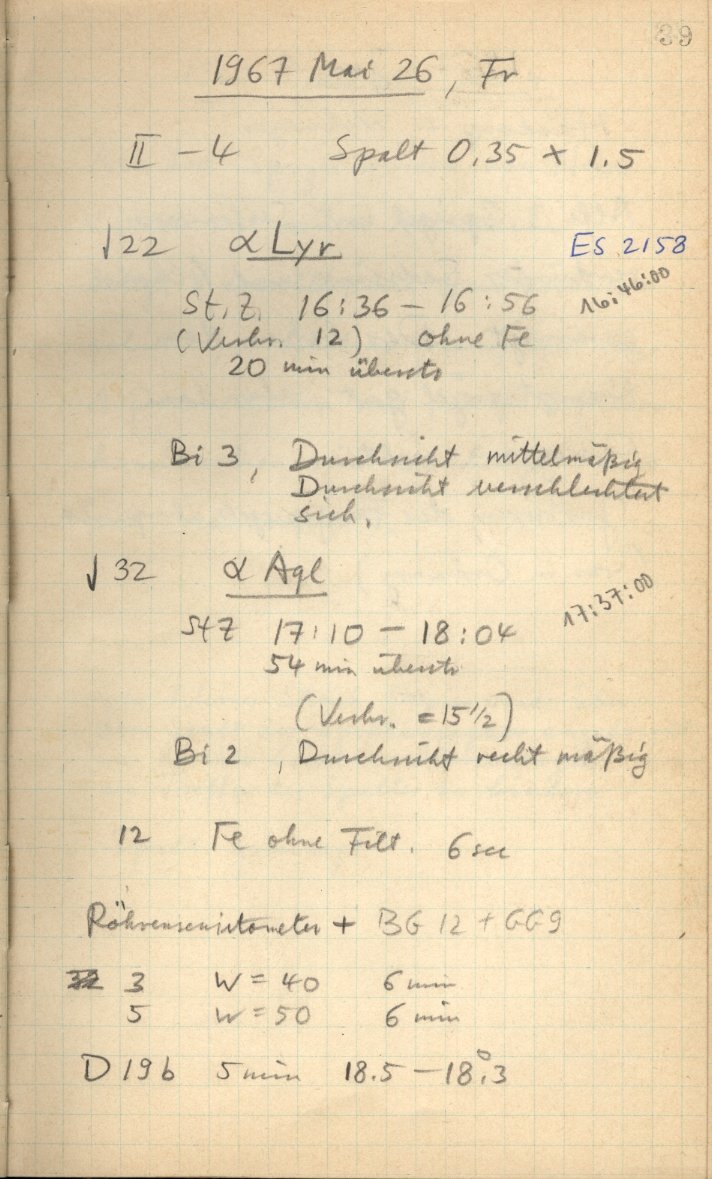 39
1967 Mai 26, Fr
II – 4 Spalt 0.35 × 1.5
√22 α Lyr ES 2158
St.Z. 16:36 – 16:56 16:46:00
(Verbr. 12) ohne Fe
20 min überstr
Bi 3, Durchsicht mittelmäßig
Durchsicht verschlechtert
sich.
√32 α Aql
StZ 17:10 – 18:04 17:37:00
54 min überstr
(Verbr. = 15 1/2)
Bi 2, Durchsicht recht mäßig
12 Fe ohne Filt. 6 sec
Röhrensensitometer + BG 12 + GG9
3 W = 40 6 min
5 W = 50 6 min
D 19b 5 min 18.5 – 18°.3